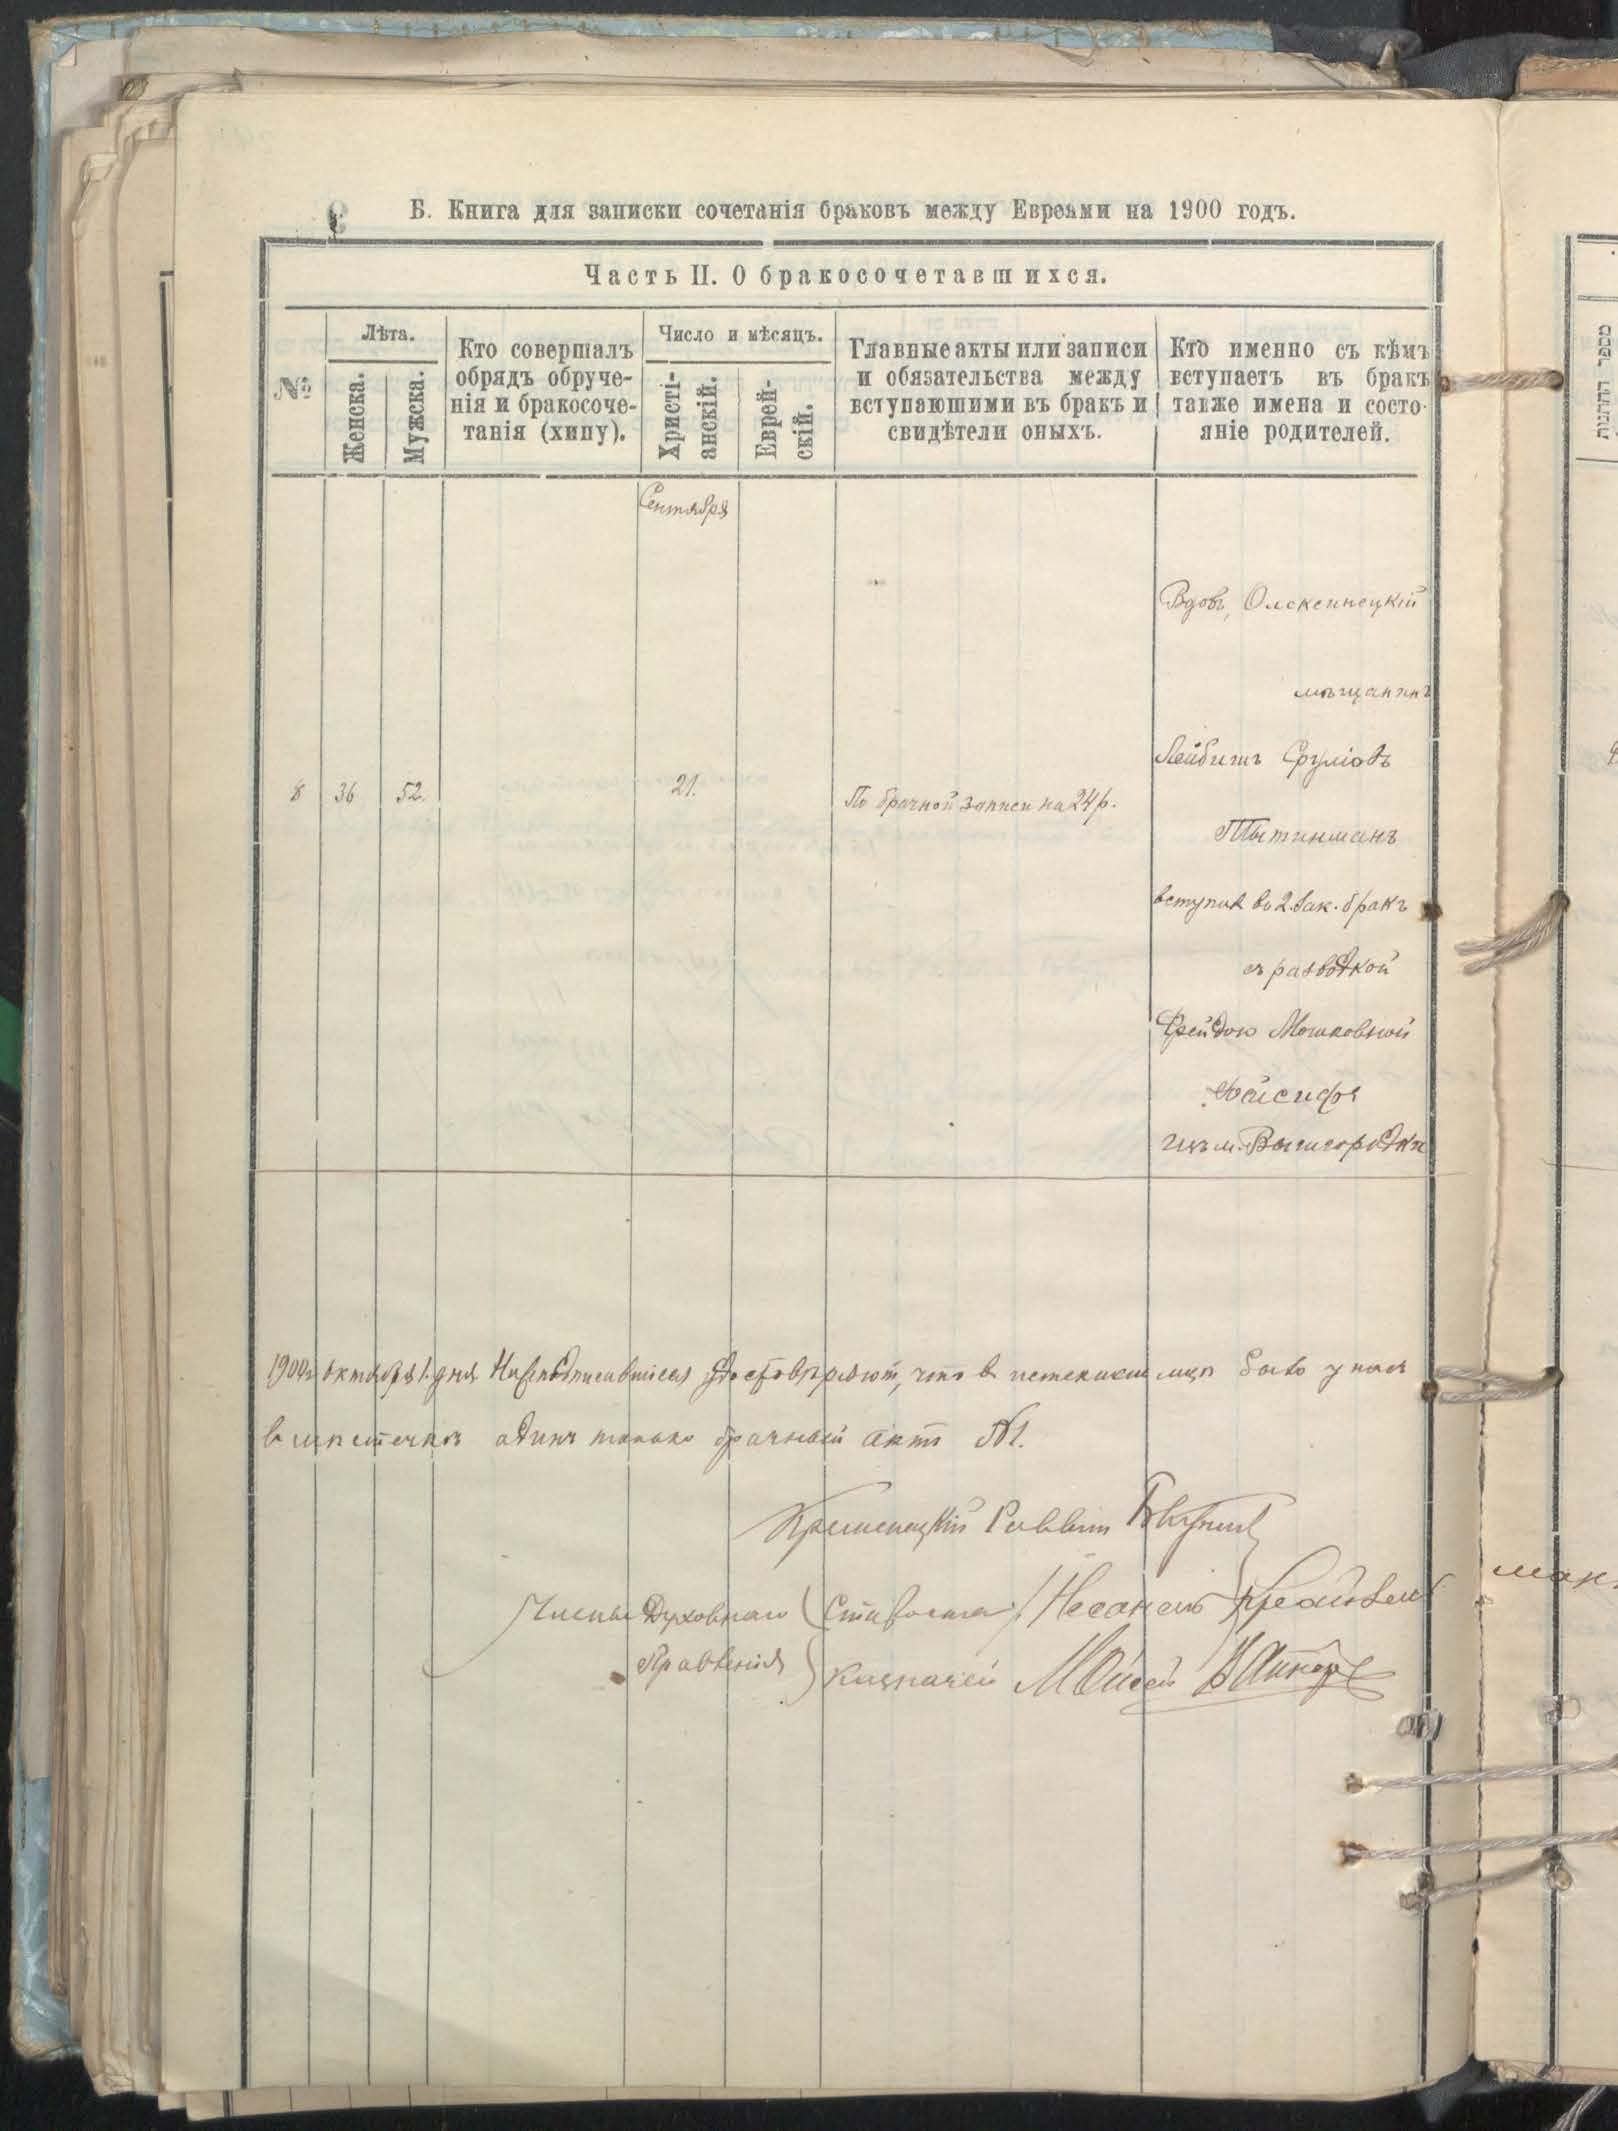 Б. Книга для записки сочетанія браковъ между Евреями на 1900 годъ.
Часть II. О бракосочетавшихся.
№
Лѣта.
Женска.
Мужска.
Кто совершалъ
обрядъ обруче-
нія и бракосоче-
танія (хипу).
Число и мѣсяцъ.
Христі-
анскій.
Еврей-
скій.
Главные акты или записи
и обязательства между
вступающими въ бракъ и
свидѣтели оныхъ.
Кто именно съ кѣмъ
вступаетъ въ бракъ
также имена и состо-
яніе родителей.
Сентября
8 36 52. 21. По брачной записи на 24 р.
Вдовъ, Олексинецкій
мѣщанинъ
Лейбишъ Сруліовъ
вступил во 2. зак. бракъ
съ разводкой
Фрейдою Мошковной
изъ м. Вышгородки
1900 г. октября 1. дня Нижеподписавшіеся удостовѣряют, что в истекшем мцѣ было у нас
в мѣстечкѣ одинъ только брачный актъ №1.
Кременецкій Раввин
Члены Духовнаго
Правленія
Староста
Казначей Мойсей